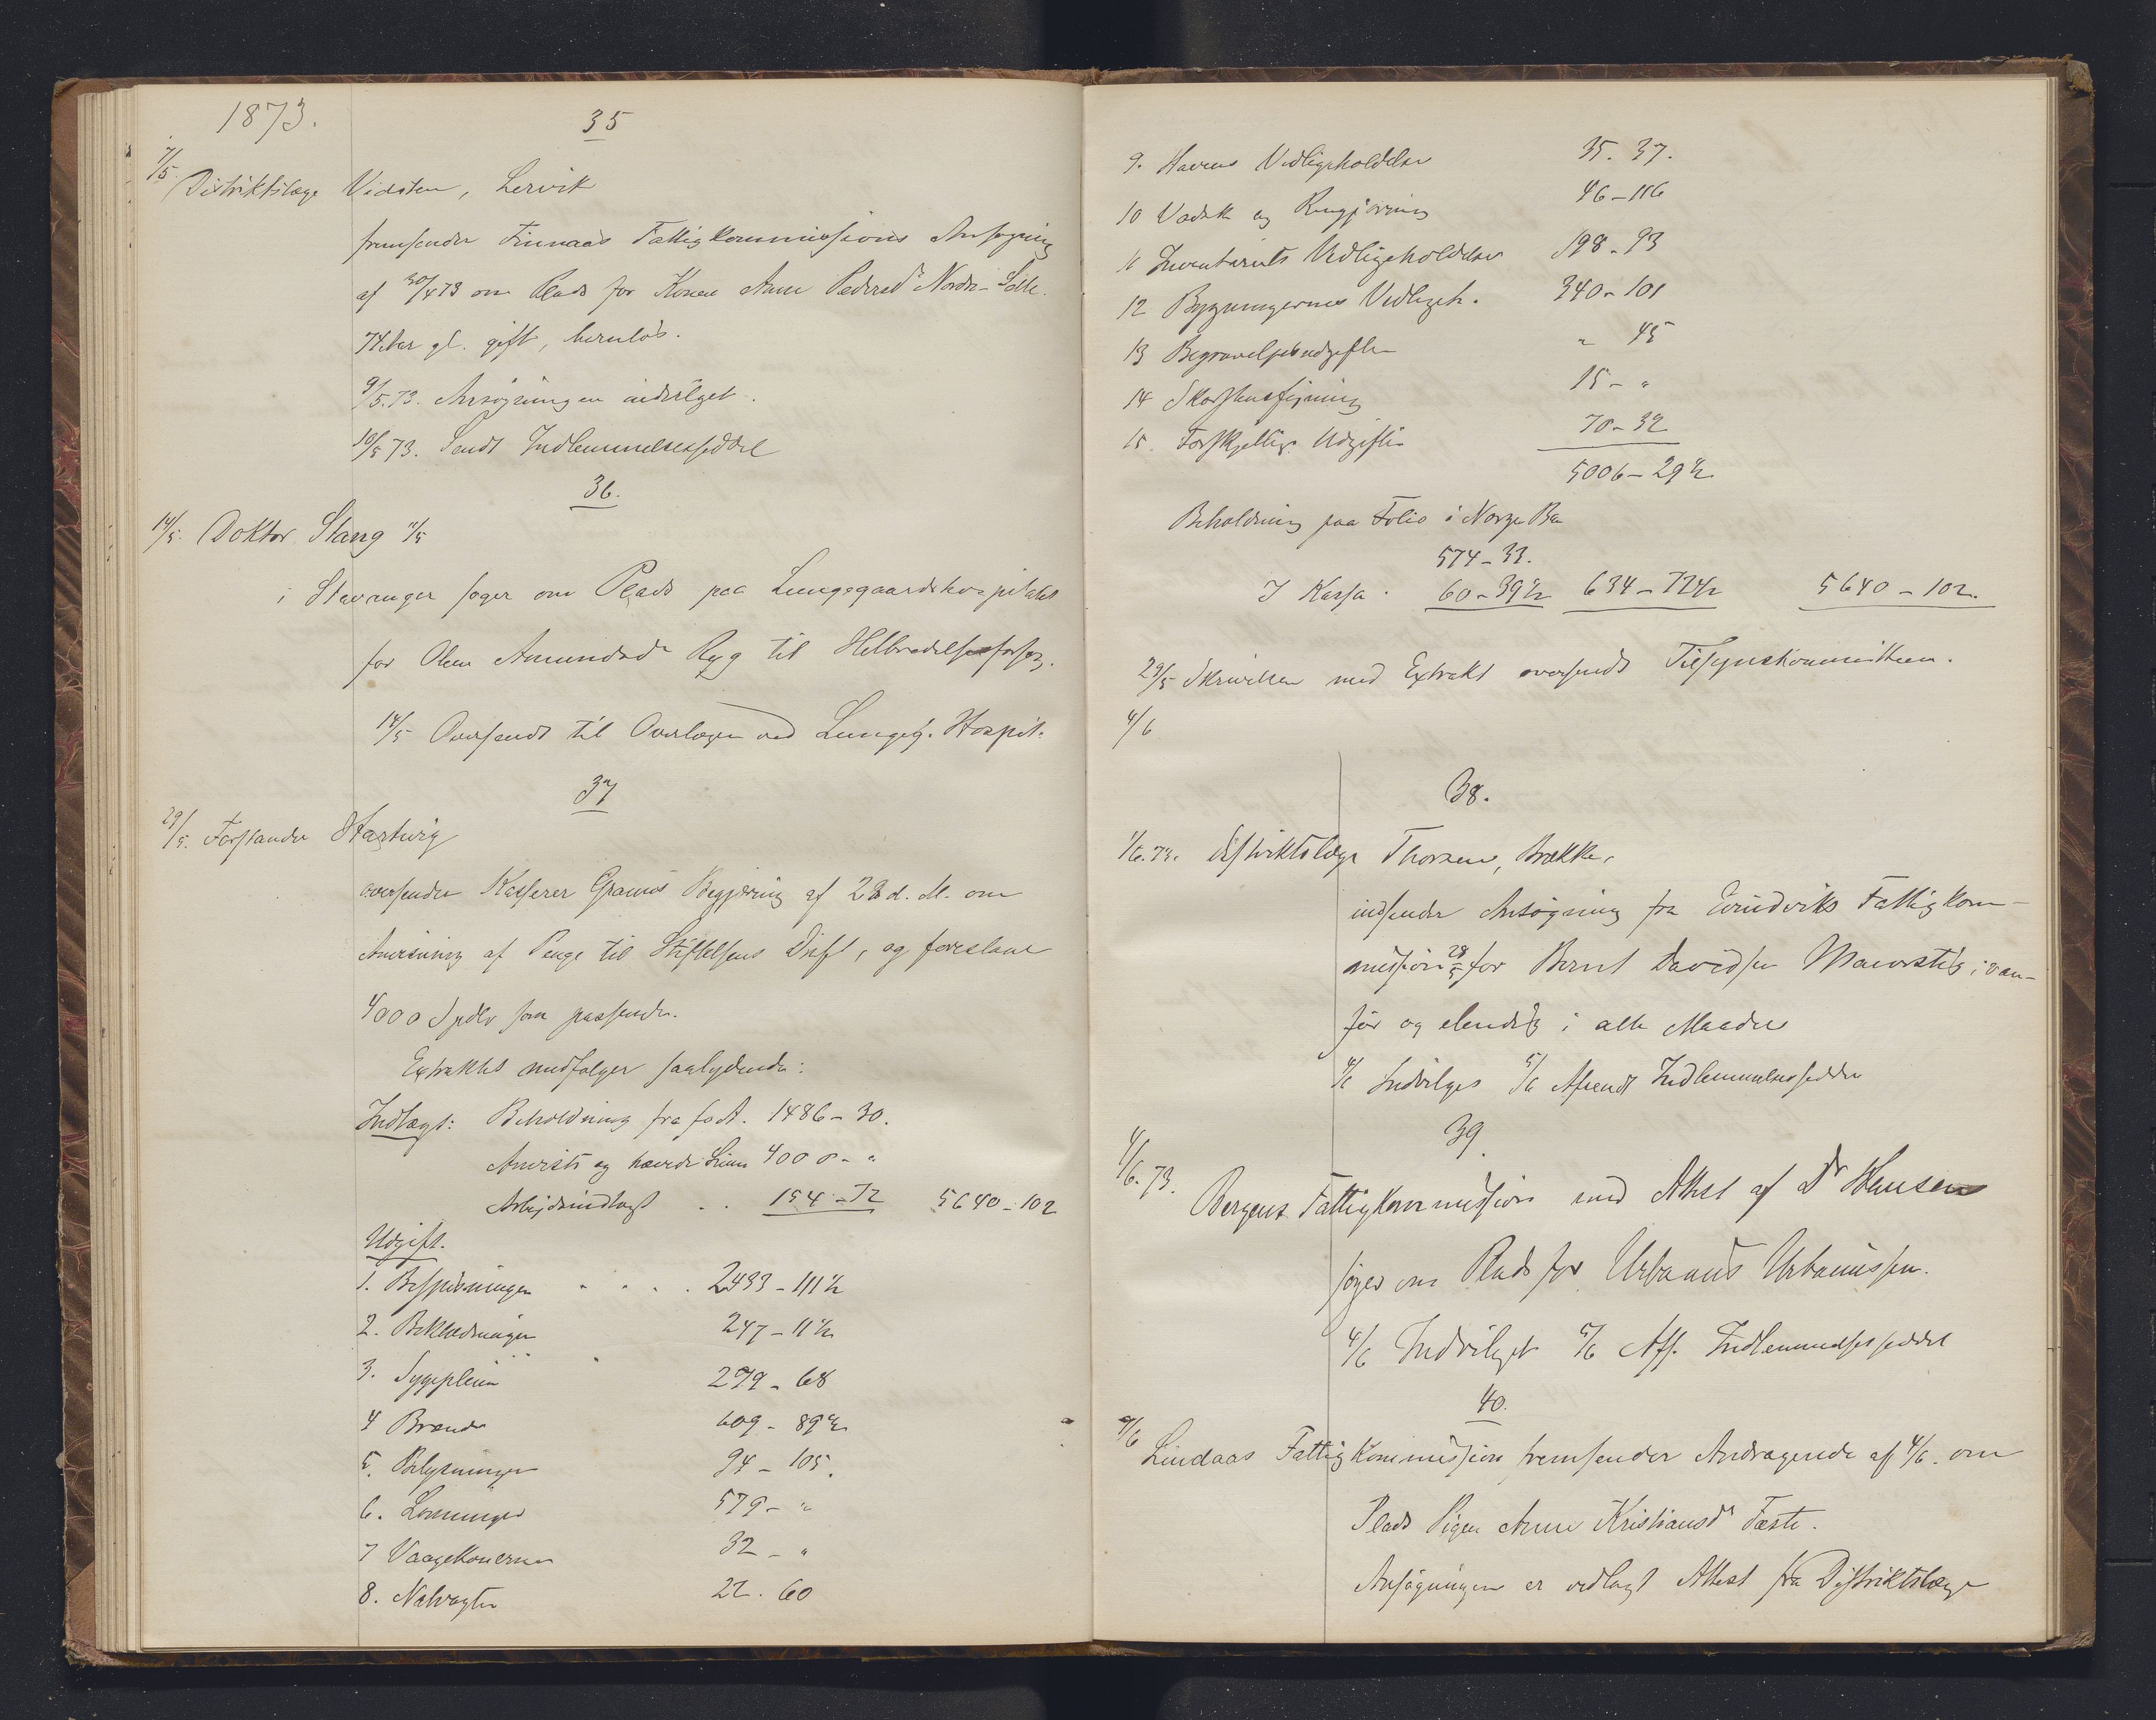 1873.
35
7/5. Distriktslæge Vidsten, Lervik
fremsender Finnaas Fattigkommissions Ansøgning
af 30/4 73 om Plads for Konen Anne Pedersdr Nordre-Selle.
74 Aar gl. gift, barnløs.
9/5.73. Ansøgningen indvilget.
10/5 73. Sendt Indlemmelsesseddel
36.
14/5. Doktor Stang 11/5
i Stavanger søger om Plads paa Lungegaardshospitalet
for Olene Amundsdr Ryg til Helbredelsesforsøg.
14/5 Oversendt til Overlægen ved Lungeg. Hospit.
37
29/5. Forstander Hartwig
oversender Kasserer Grams Begjæring af 28 d. M. om
Anvisning af Penge til Stiftelsens Drift, og foreslaar
4000 Spdlr som passende.
Extraktet medfølger saalydende:
Indtægt: Beholdning fra f. A. 1486-30.
Anviste og hævede 4000 - "
Arbejdsindtægt . . 154-72 5640-102
Udgift.
1. Bespisningen . . . . 2433-111½
2. Beklædningen 247-11½
3. Sygepleien 279-68
4 Brænde 609-89½
5. Belysningen 94-105.
6. Lønninger 579- "
7 Vaagekonerne 32- "
8. Natvagten 22.60
9. Havens Vedligeholdelse 35.37.
10 Vadsk og Rengjøring 46-116
11 Inventariets Vedligeholdelse 198-93
12 Bygningernes Vedligeh. 340-101
13 Begravelsesudgifter " 45
14 Skorstensfejning 15- "
15. Forskjellige Udgifter 70-32
5006-29½
Beholdning paa Folio i Norges Ba
574-33.
I Kassa . 60-39½ 634-72½ 5640-102.
29/5 Skrivelsen med Extrakt oversendt Tilsynskommitteen.
4/6
38.
1/6.73. Distriktslæge Thorsen, Brække,
indsender Ansøgning fra Evindviks Fattigkom-
mission 28/5 for Bernt Davidsen ; van-
før og elendig i alle Maader
4/6 Indvilges 5/6 Afsendt Indlemmelsesseddel
39.
4/6.73. Bergens Fattigkommission med Attest af Dr Hansen
søger om Plads for Urbanus Urbanussen.
4/6 Indvilget 5/6 Afs. Indlemmelsesseddel
40.
9/6 Lindaas Fattigkommission fremsender Andragende af 4/6. om
Plads Pigen Anne Kristiansdr Fæste.
Ansøgningen er vedlagt Attest fra Distriktslæge